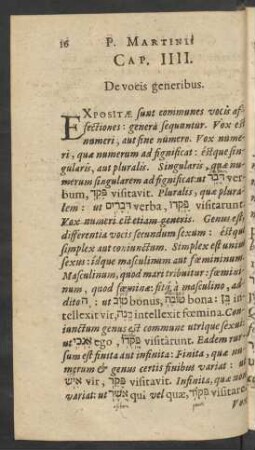 16 P. MARTINII
CAP. IIII.
De vocis generibus.
EXPOSITÆ sunt communes vocis af-
fectiones: genera sequuntur. Vox est
numeri, aut sine numero. Vox nume-
ri, quæ numerum ad significat: éstque sin-
gularis, aut pluralis. Singularis, quæ nu-
merum singularem ad significat: ut דָּבָר ver-
bum, פָּקַד visitavit. Pluralis, quæ plura-
lem: ut דְּבָרִים verba, פָּקְדוּ visitarunt.
Vox numeri est etiam generis. Genus est
differentia vocis secundùm sexum: éstque
simplex aut coniunctum. Simplex est unius
sexus: idque masculinum aut fœmininum.
Masculinum, quod mari tribuitur: fœmini-
num, quod fœminæ: fitq́; à masculino, ad-
dito ה: ut טוֹב bonus, טוֹבָה bona: בָּן in-
tellexit vir, בָּנָה intellexit fœmina. Con-
iunctum genus est commune utrique sexui:
ut אָנֹכִי ego, פָּקְדוּ visitarunt. Eadem rur-
sum est finita aut infinita: Finita, quæ nu-
merum & genus certis finibus variat: ut
אִישׁ vir, פָּקַד visitavit. Infinita, quæ non
variat: ut אֲשֶׁר qui vel quæ, פָּקוֹד visitavit
Vox